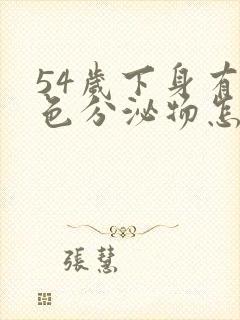 54歲下身有
色分泌物怎
張慧